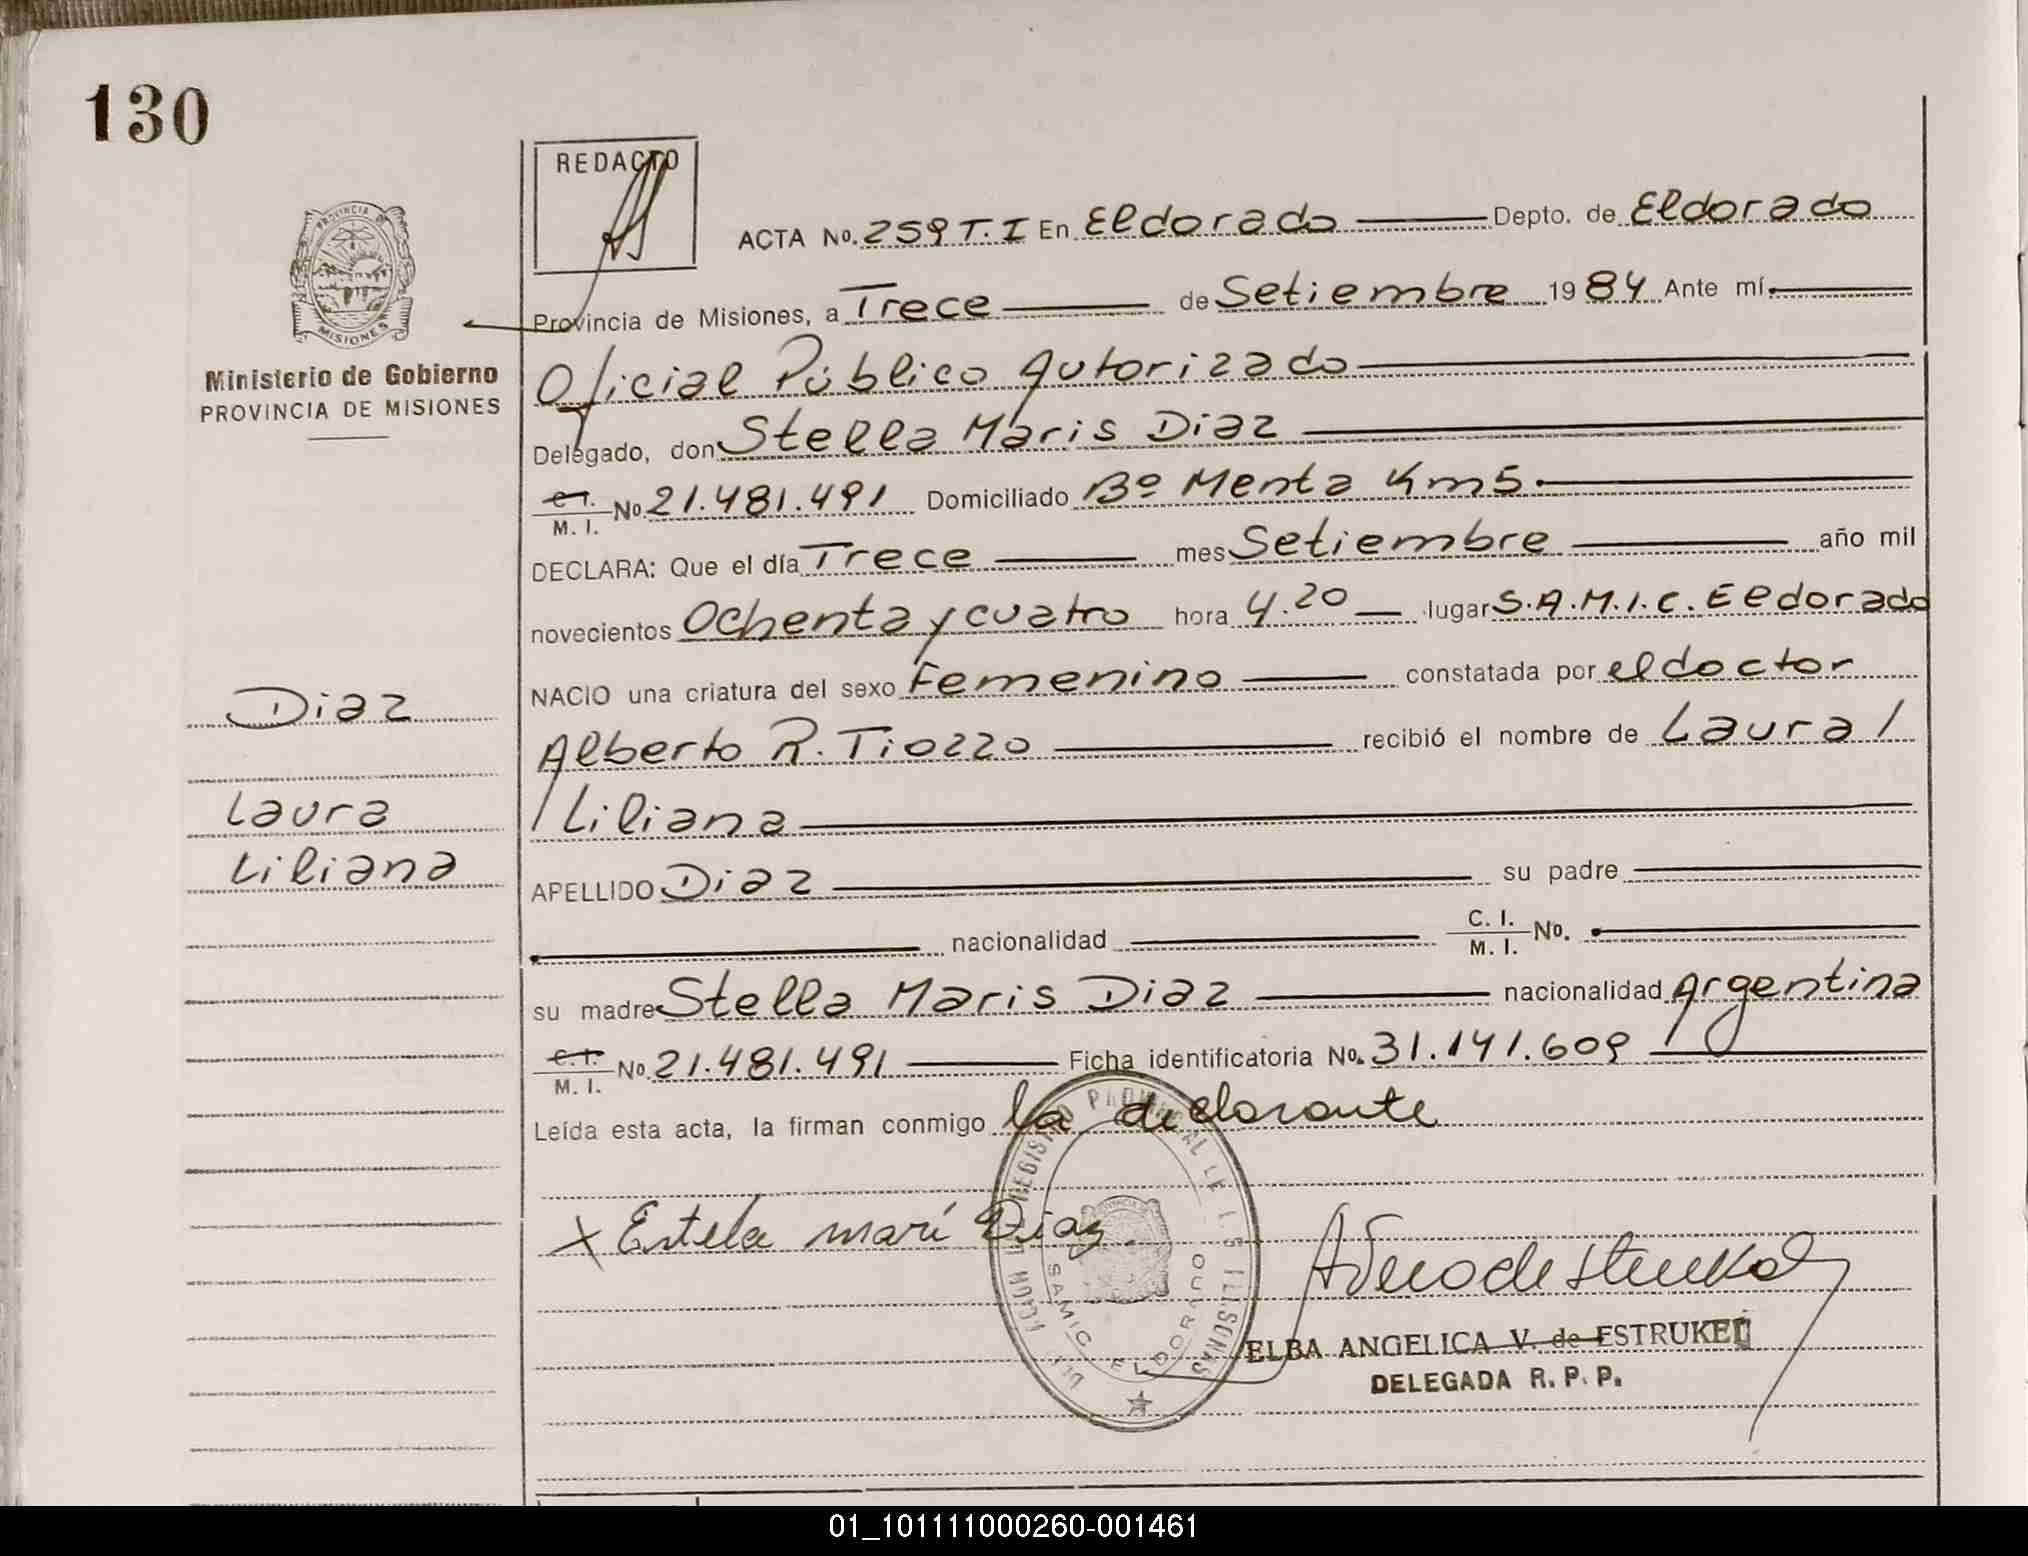 130
REDACTO
PROVINCIA DE
MISIONES
Ministerio de Gobierno
PROVINCIA DE MISIONES
ACTA No. 259 T.I En Eldorado Depto. de Eldorado
Provincia de Misiones, a Trece de Setiembre 1984 Ante mí
Oficial Público Autorizado
Delegado, don Stella Maris Diaz
C.I. M. I. No. 21.481.491 Domiciliado Bº Menta Km5.
DECLARA: Que el día Trece mes Setiembre año mil
novecientos Ochenta y cuatro hora 4.20 lugar S.A.M.I.C. Eldorado
NACIO una criatura del sexo Femenino constatada por el doctor
Alberto R. Tiozzo recibió el nombre de Laura /
/ Liliana
APELLIDO Diaz su padre
nacionalidad C. I. M. I. No.
su madre Stella Maris Diaz nacionalidad Argentina
C.I. M. I. No. 21.481.491 Ficha identificatoria No. 31.141.609
Leída esta acta, la firman conmigo la declarante
Diaz
Laura
Liliana
x Estela mari Diaz.
SAMIC ELDORADO
ELBA ANGELICA V. de ESTRUKEL
DELEGADA R. P. P.
01_101111000260-001461